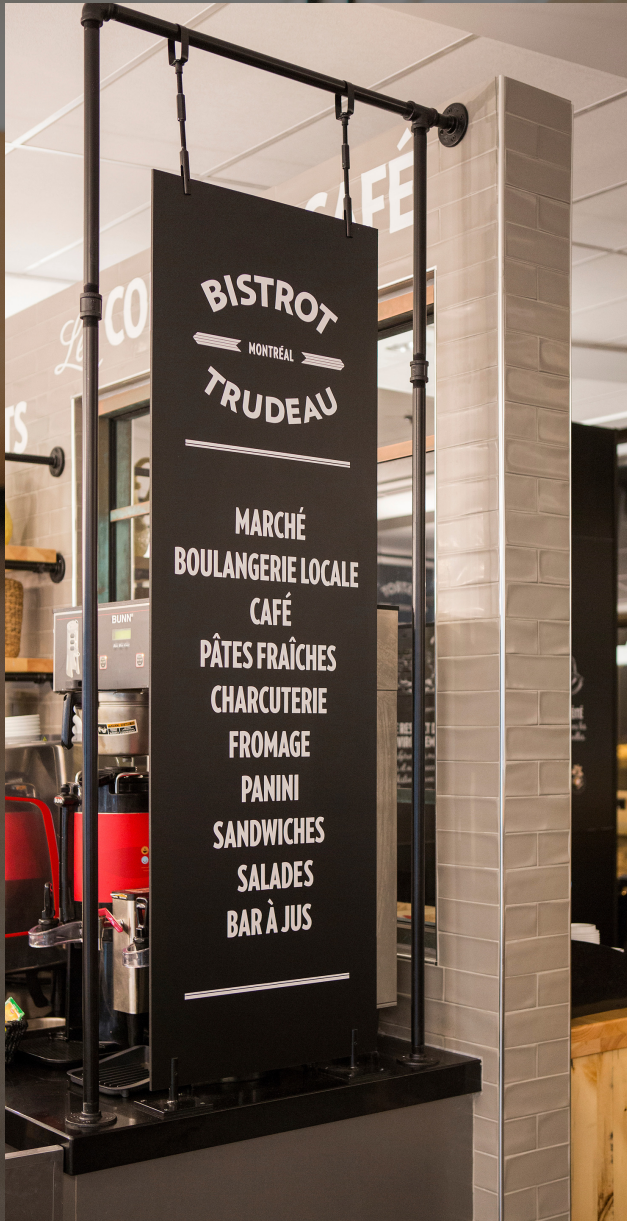 CAFÉ
Le CO
TS
BISTROT
MONTRÉAL
TRUDEAU
MARCHÉ
BOULANGERIE LOCALE
CAFÉ
PÂTES FRAÎCHES
CHARCUTERIE
FROMAGE
PANINI
SANDWICHES
SALADES
BAR À JUS
BUNN